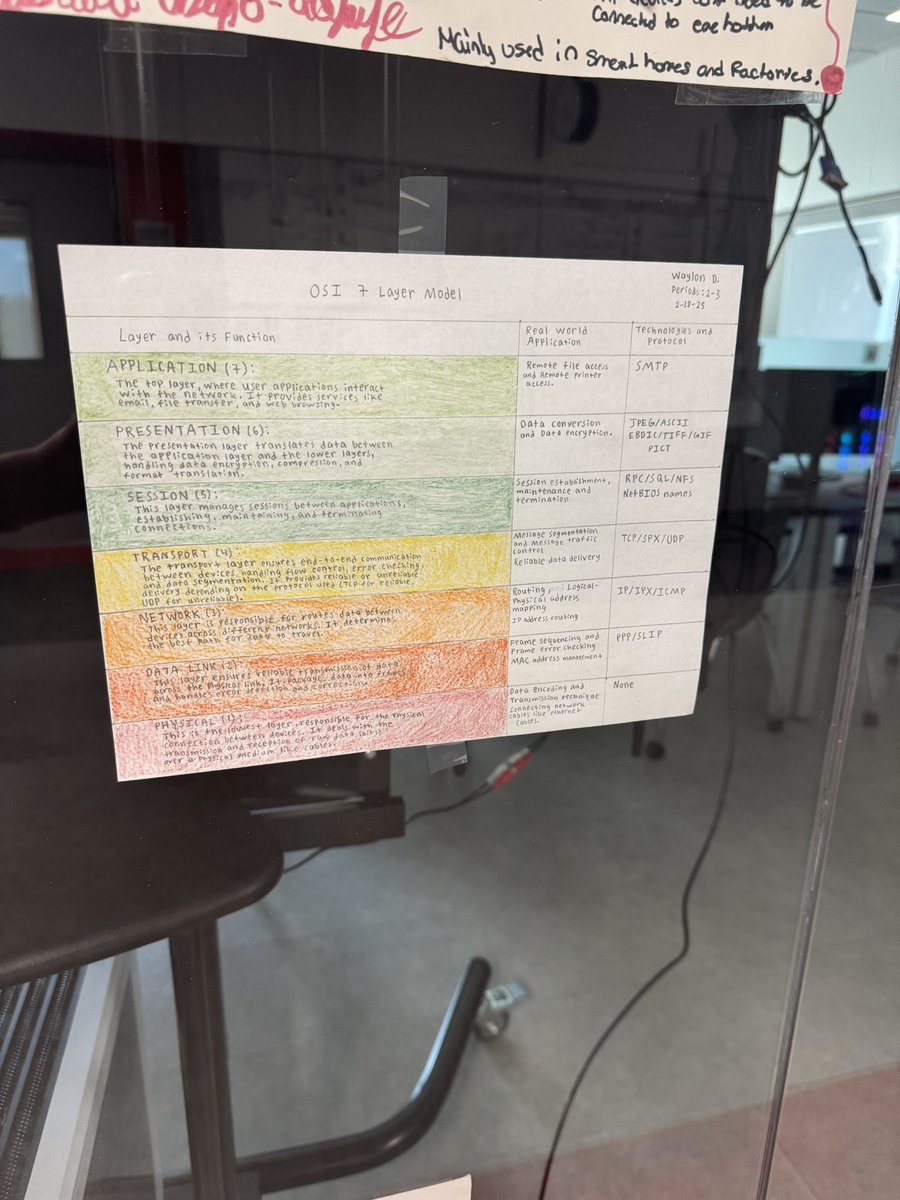 Connected to eachothem
Mainly used in Smart homes and Factories.
OSI 7 Layer Model
Waylon D.
Periods: 2-3
2-18-25
Layer and its Function
Real World
Application
Technologies and
Protocol
APPLICATION (7):
The top layer, where user applications interact
with the network. It provides services like
email, file transfer, and web browsing.
Remote file access
and Remote Printer
access.
SMTP
PRESENTATION (6):
The Presentation layer translates data between
the application layer and the lower layers,
handling data encryption, compression, and
format translation.
Data conversion
and Data encryption.
JPEG/ASCII
EBDIC/TIFF/GIF
PICT
SESSION (5):
This layer manages sessions between applications,
establishing, maintaining, and terminating
connections.
Session establishment,
maintenance and
termination
RPC/SQL/NFS
NetBIOS names
TRANSPORT (4):
The transport layer ensures end-to-end communication
between devices, handling flow control, error checking,
and data segmentation. It provides reliable or unreliable
delivery depending on the protocol used (TCP for reliable,
UDP for unreliable).
Message segmentation
and Message traffic
control
Reliable data delivery
TCP/SPX/UDP
NETWORK (3):
This layer is responsible for routes data between
devices across different networks. It determines
the best path for data to travel.
Routing and Logical-
Physical address
mapping
IP address routing
IP/IPX/ICMP
DATA LINK (2):
This layer ensures reliable transmission of data
across the Physical link. It package, data into frames
and handles error detection and correction.
Frame sequencing and
Frame error checking
MAC address management
PPP/SLIP
PHYSICAL (1):
This is the lowest layer, responsible for the physical
connection between devices. It deals with the
transmission and reception of raw data (bits)
over a physical medium like cables.
Data Encoding and
Transmission technique
Connecting network
cables like ethernet
cables.
None